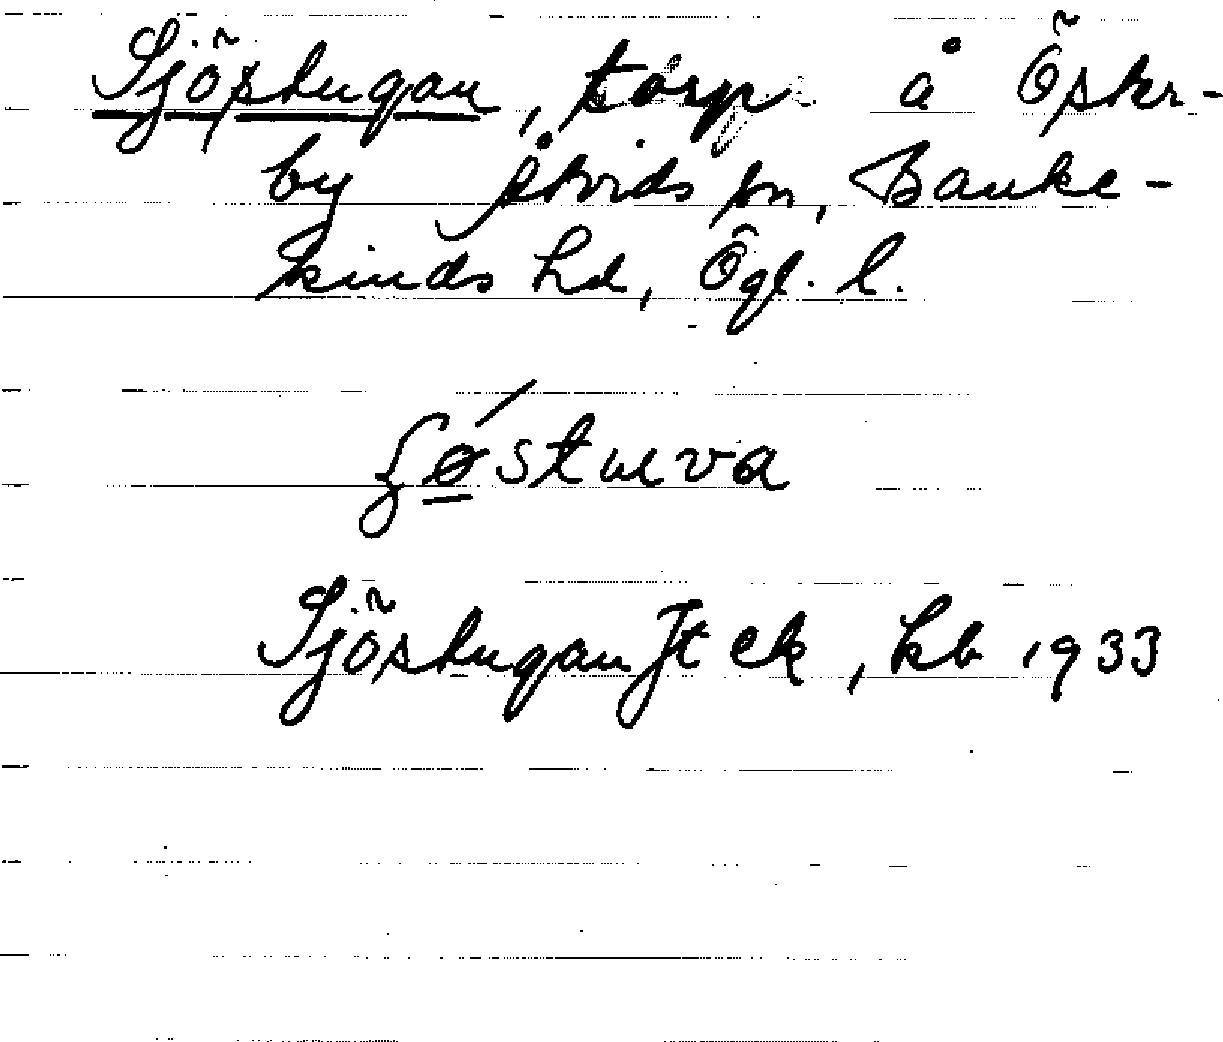 Sjöstugan, torp å Öster-
by Åtvids sn, Banke-
kinds hd, Ögl. l.
ʃøstuva
Sjöstugan Jt ek, kb 1933